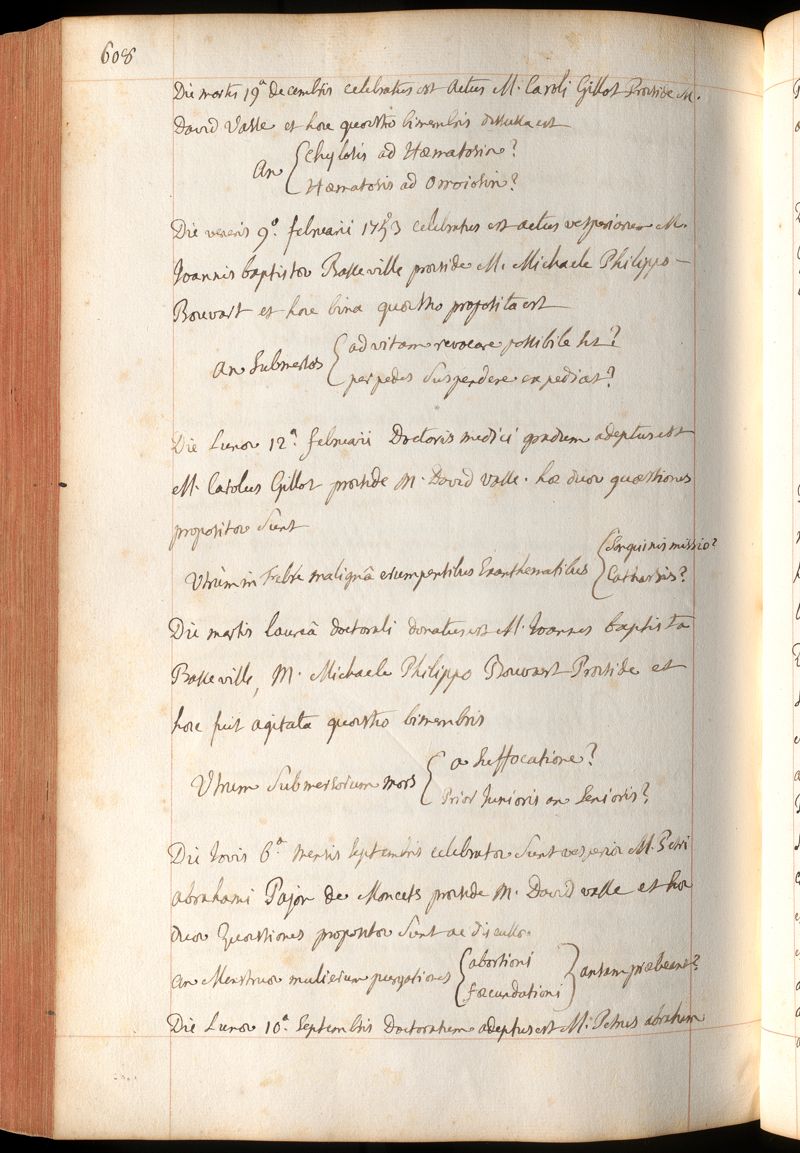 608
Die martis 19ª decembris celebratus est Actus M. Caroli Gillot Præside M.
David Vasse et hæc quæstio bimembris discussa est
An { Chylosis ad Hæmatosin?
Hæmatosis ad Orroiosin?
Die veneris 9ª februarii 1753 celebratus est actus vesperiarum M.
Joannis baptistæ Basseville præside M. Michaele Philippo
Bouvart et hæc bina quæstio proposita est
An Submersos { ad vitam revocare possibile sit?
per pedes Suspendere expediat?
Die Lunæ 12ª februarii Doctoris medici gradum adeptus est
M. Carolus Gillot præside M. David Vasse. hæ duæ quæstiones
propositæ Sunt
Utrùm in Febre malignâ erumpentibus Exanthematibus { Sanguinis missio?
Catharsis?
Die martis laureâ doctorali donatus est M. Joannes baptista
Basseville, M. Michaele Philippo Bouvart Præside et
hæc fuit agitata quæstio bimembris
Utrum Submersorum mors { a Suffocatione?
Prior Junioris an Senioris?
Die Jovis 6ª mensis Septembris celebratæ Sunt vesperiæ M. Petri
abrahami Pajon de Moncets præside M. David vasse et hæ
duæ Quæstiones propositæ Sunt ac discussæ
An Menstruæ mulierum purgationes { abortioni
fœcundationi } ansam præbeant?
Die Lunæ 10ª Septembris Doctoratum adeptus est M. Petrus abraham